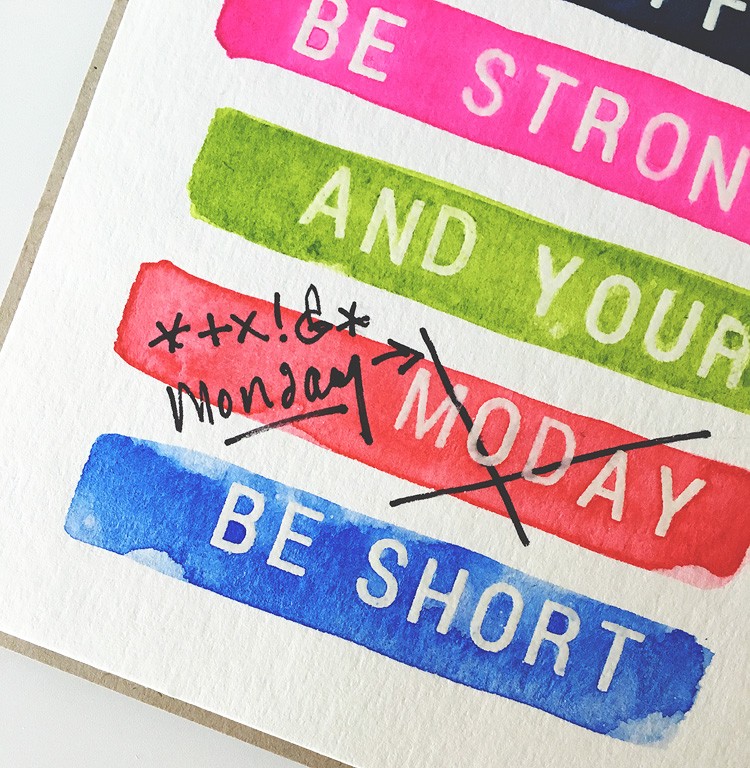 BE STRON
AND YOUR
*+x!&*
Monday →
MODAY
BE SHORT